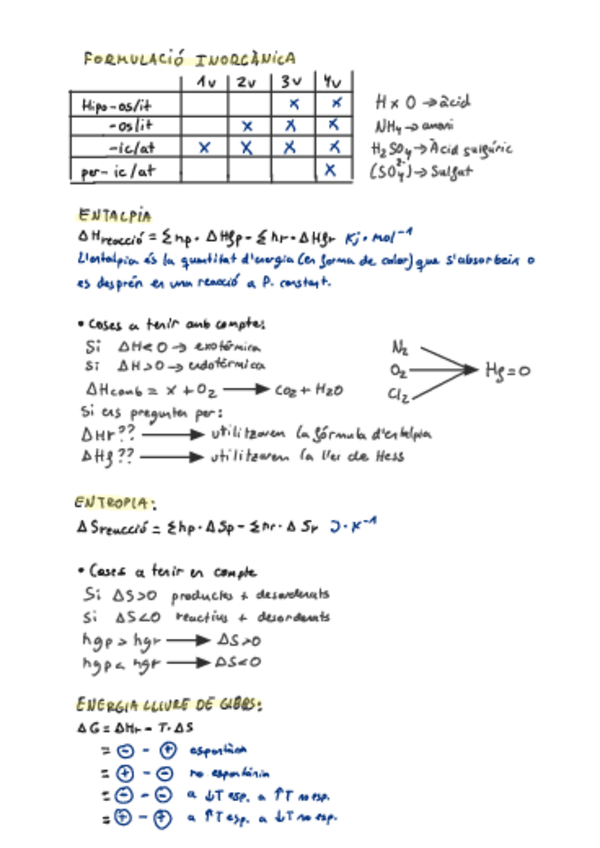 FORMULACIÓ INORGÀNICA
1v 2v 3v 4v
Hipo-os/it x x
-os/it x x x
-ic/at x x x x
per-ic/at x
H x O → àcid
NH4 → amoni
H2SO4 → Àcid sulfúric
(SO4^2-) → Sulfat
ENTALPIA
ΔHreacció = Σnp · ΔHfp - Σnr · ΔHfr Kj · mol^-1
L'entalpia és la quantitat d'energia (en forma de calor) que s'absorbeix o
es desprèn en una reacció a P. constant.
• Coses a tenir amb compte:
Si ΔH<0 → exotèrmica
Si ΔH>0 → endotèrmica
ΔHcomb = x + O2 → CO2 + H2O
Si ens pregunten per:
ΔHr?? → utilitzarem la fórmula d'entalpia
ΔHf?? → utilitzarem la llei de Hess
N2
O2
Cl2
Hf=0
ENTROPIA:
ΔSreacció = Σnp · ΔSp - Σnr · ΔSr J · K^-1
• Coses a tenir en compte
Si ΔS>0 productes + desordenats
Si ΔS<0 reactius + desordenats
ngp > ngr → ΔS>0
ngp < ngr → ΔS<0
ENERGIA LLIURE DE GIBBS:
ΔG = ΔHr - T·ΔS
= ⊖ - ⊕ espontània
= ⊕ - ⊖ no espontània
= ⊖ - ⊖ a ↓T esp. a ↑T no esp.
= ⊕ - ⊕ a ↑T esp. a ↓T no esp.